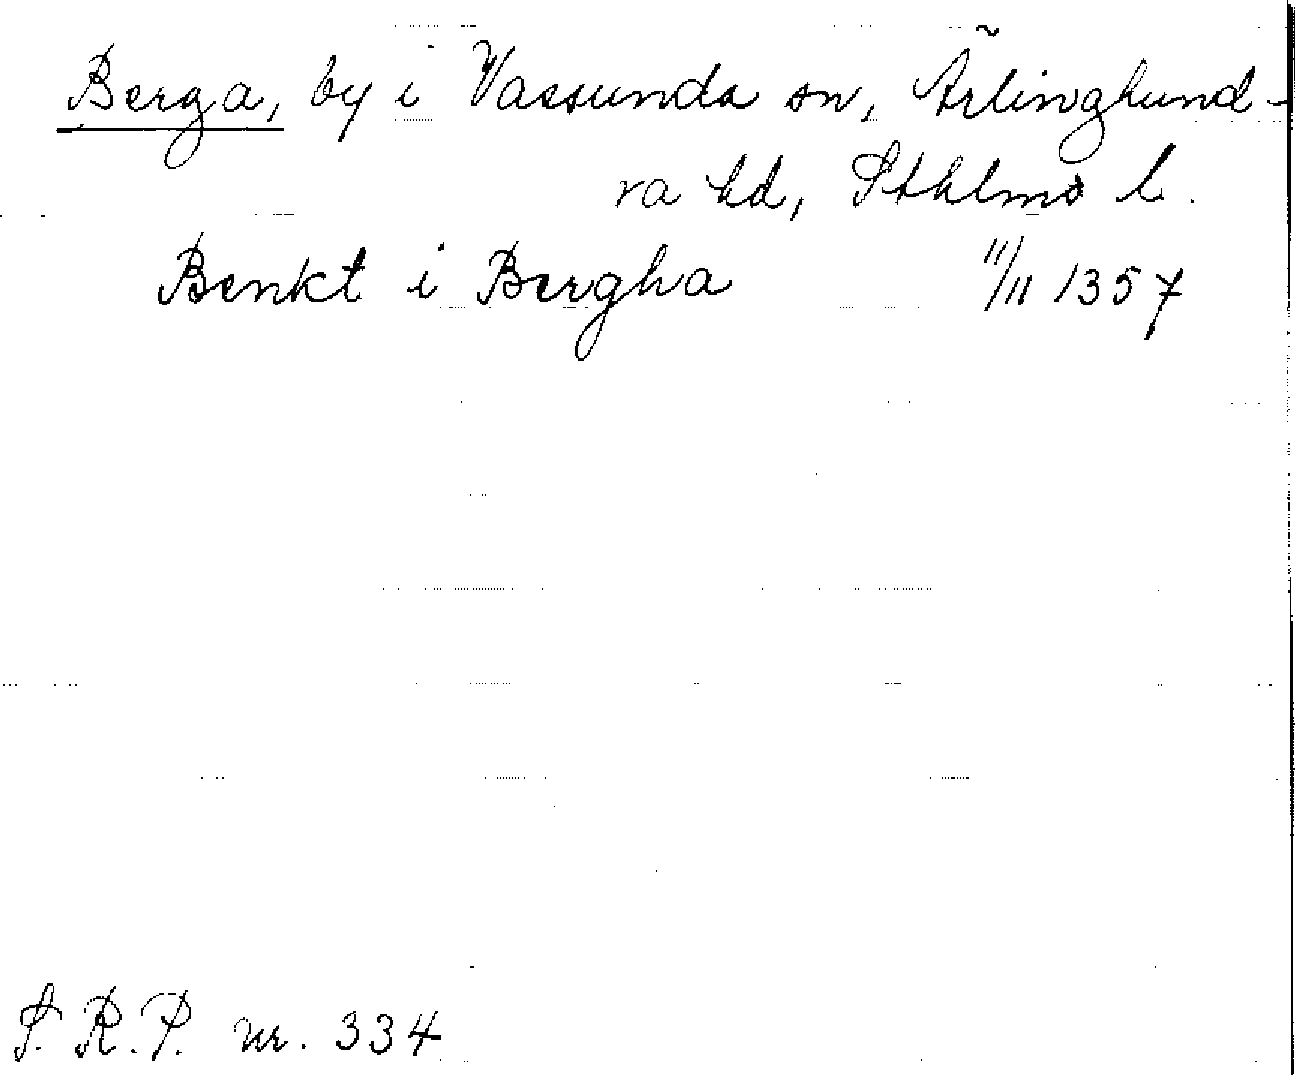 Berga, by i Vassunda sn, Ärlinghund-
ra hd, Sthlms l.
Benkt i Bergha 11/11 1357
S.R.P. nr. 334